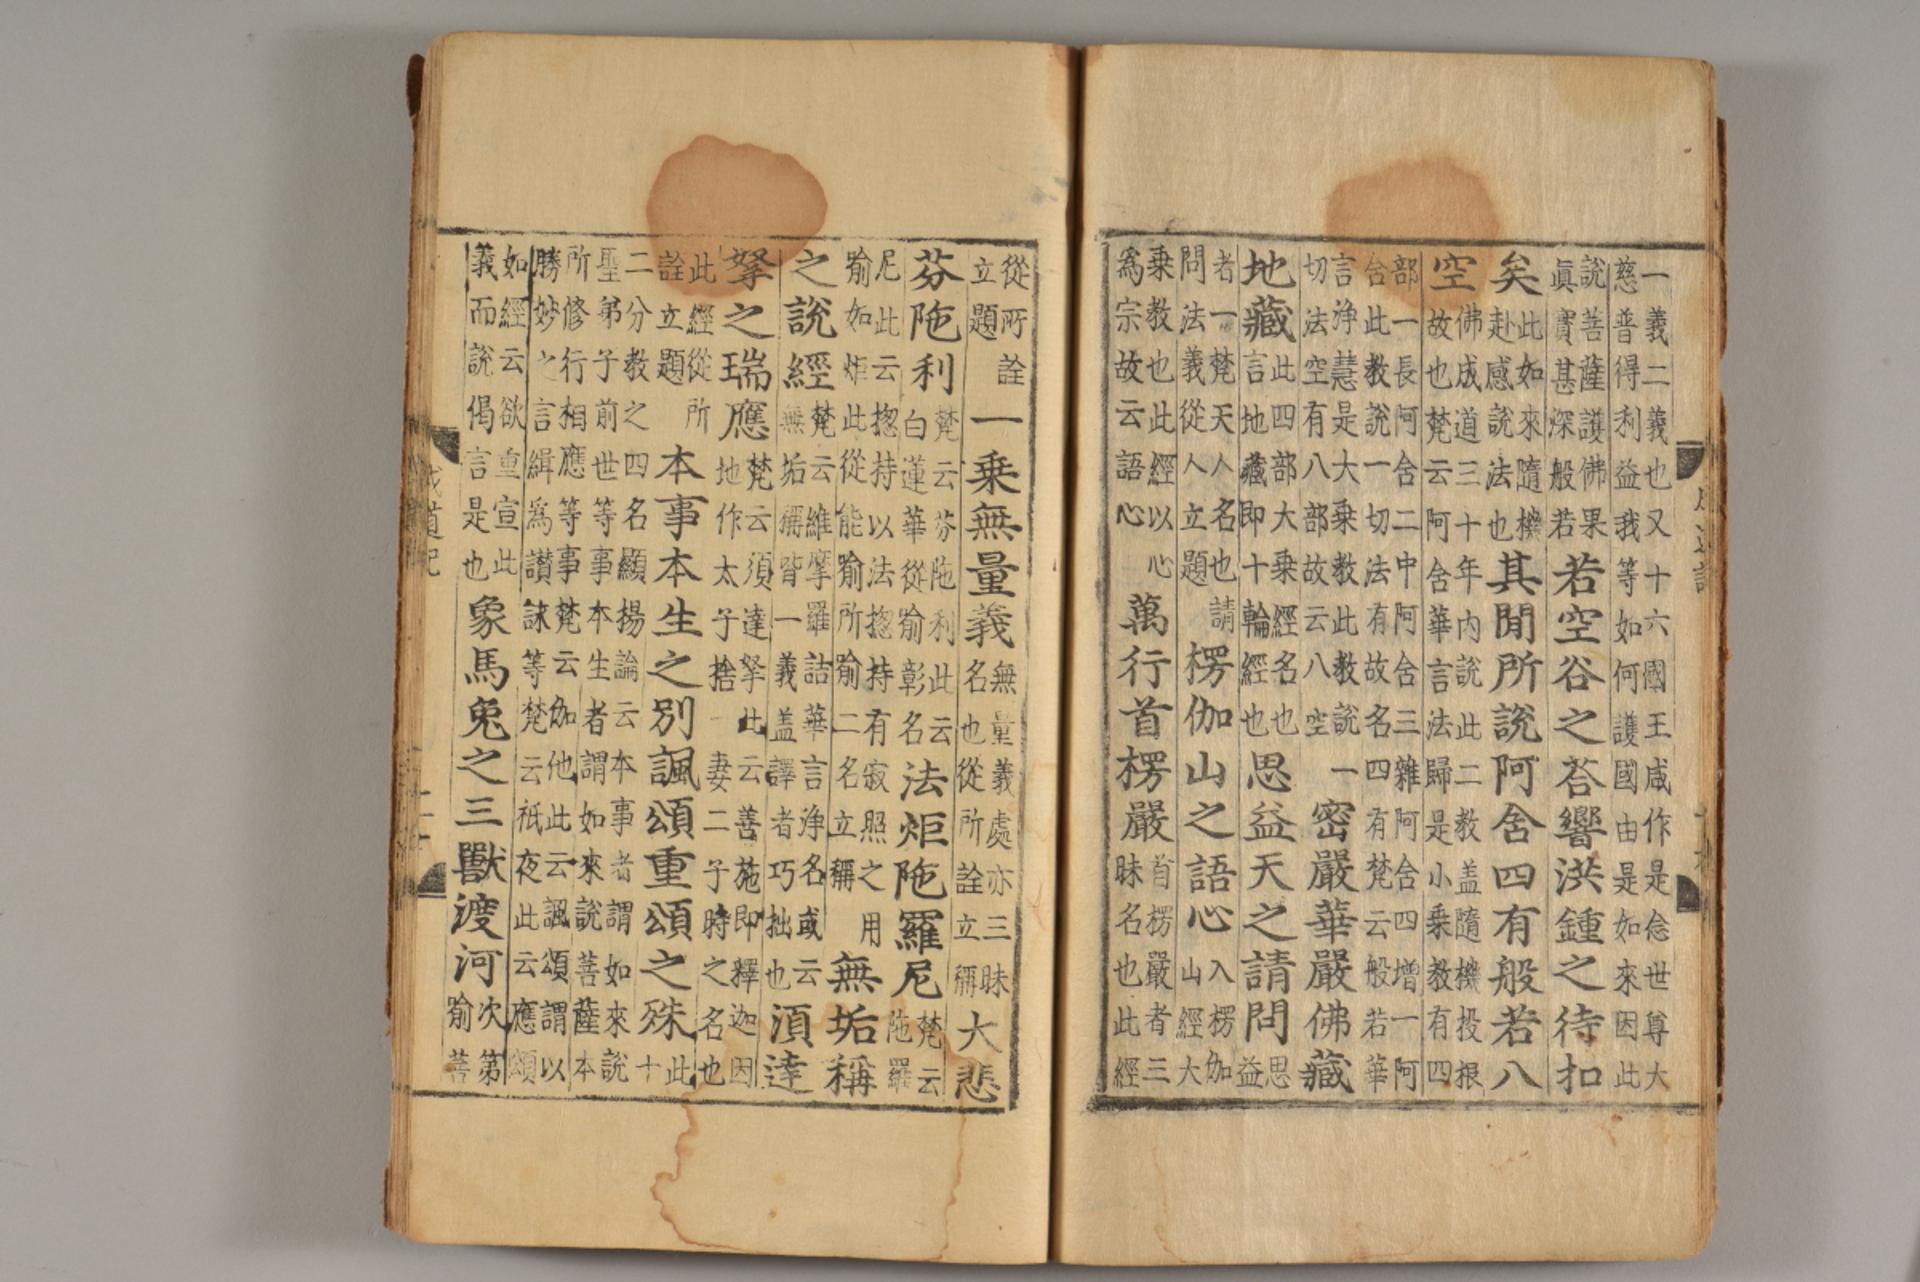 一義二義也又十六國王咸作是念世尊大
慈普得利益我等如何護國由是如來因此
說菩薩護佛果
眞實甚深般若
若空谷之荅響洪鍾之待扣
矣
此如來隨機
赴感說法也
其聞所說阿含四有般若八
空
佛成道三十年內說此二教盖隨機投根
故也梵云阿含華言法歸是小乘教有四
部一長阿含二中阿含三雜阿含四增一阿
含此教說一切法有故名四有梵云般若華
言淨慧是大乘教此教說一
切法空有八部故云八空
密嚴華嚴佛藏
地藏
此四部大乘經名也
言地藏即十輪經也
思益天之請問
思
益
者一梵天人名也請
問法義從人立題
楞伽山之語心
入楞伽
山經大
乘教也此經以心
爲宗故云語心
萬行首楞嚴
首楞嚴者三
昧名也此經
從所詮
立題
一乘無量義
無量義處亦三昧
名也從所詮立稱
大悲
芬陁利
梵云芬陁利此云
白蓮華從喻彰名
法炬陁羅尼
梵云
陁羅
尼此云揔持以法揔持有寂照之用
喻如炬此從能喻所喻二名立稱
無垢稱
之說經
梵云維摩羅詰華言淨名或云
無垢稱皆一義盖譯者巧拙也
湏達
拏之瑞應
梵云須達拏此云善施即釋迦因
地作太子捨一妻二子時之名也
此經從所
詮立題
本事本生之別諷頌重頌之殊
此
十
二分教之四名顯揚論云本事者謂如來說
聖弟子前世等事本生者謂如來說菩薩本
所修行相應等事梵云伽他此云諷頌謂以
勝妙之言緝爲讃詠等梵云祇夜此云應頌
如經云欲重宣此
義而說偈言是也
象馬兔之三獸渡河
次第
喻菩